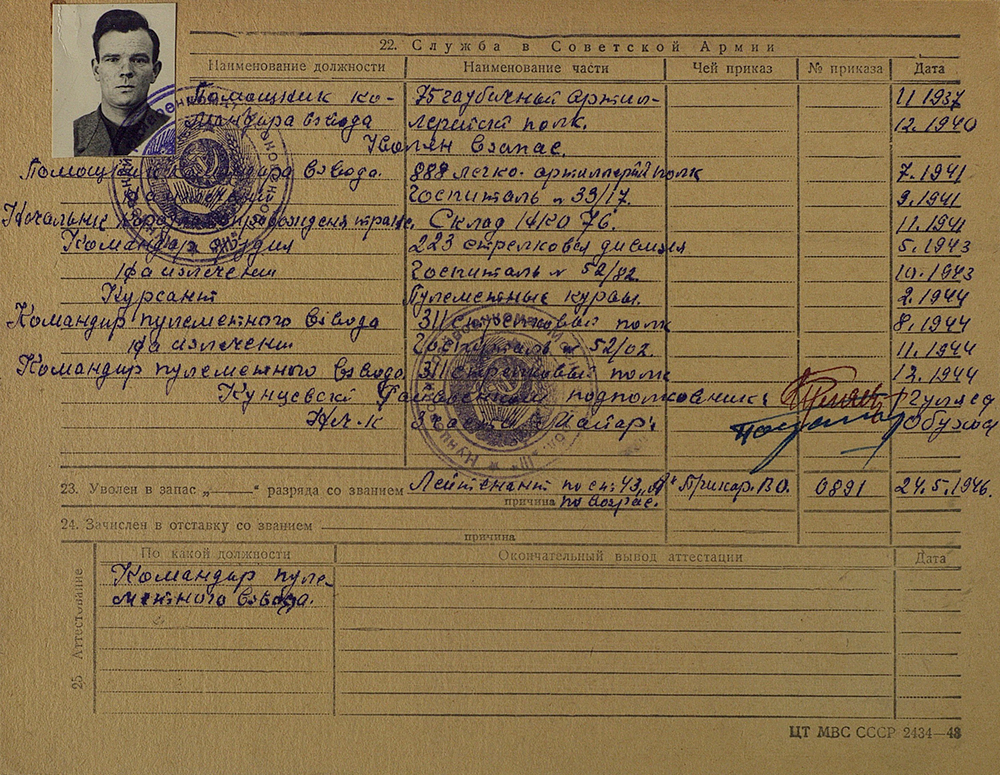 22. Служба в Советской Армии
Наименование должности Наименование части Чей приказ № приказа Дата
Помощник ко- 75 гаубичный артил- 11.1937
мандира взвода лерийск полк. 12.1940
Уволен в запас.
Помощник командира взвода. 888 легко-артиллерий полк 7.1941
Госпиталь № 33/17. 9.1941
Начальник Склад НКО 76. 11.1941
Командир орудия 223 стрелковая дивизия 5.1943
На излечении Госпиталь № 52/82. 10.1943
Курсант Пулеметные курсы. 2.1944
Командир пулеметного взвода 311 стрелковый полк 8.1944
На излечении Госпиталь № 52/02. 11.1944
Командир пулеметного взвода 311 стрелковый полк 12.1944
Кунцевский Райвоенком подполковник
Нч. 3 части Майор
23. Уволен в запас „ “ разряда со званием Лейтенант по ст. 43 „А“ Прикар.ВО. 0891 24.5.1946.
причина по возрас.
24. Зачислен в отставку со званием
причина
25 Аттестование
По какой должности Окончательный вывод аттестации Дата
Командир пуле-
метного взвода.
ЦТ МВС СССР 2434—48